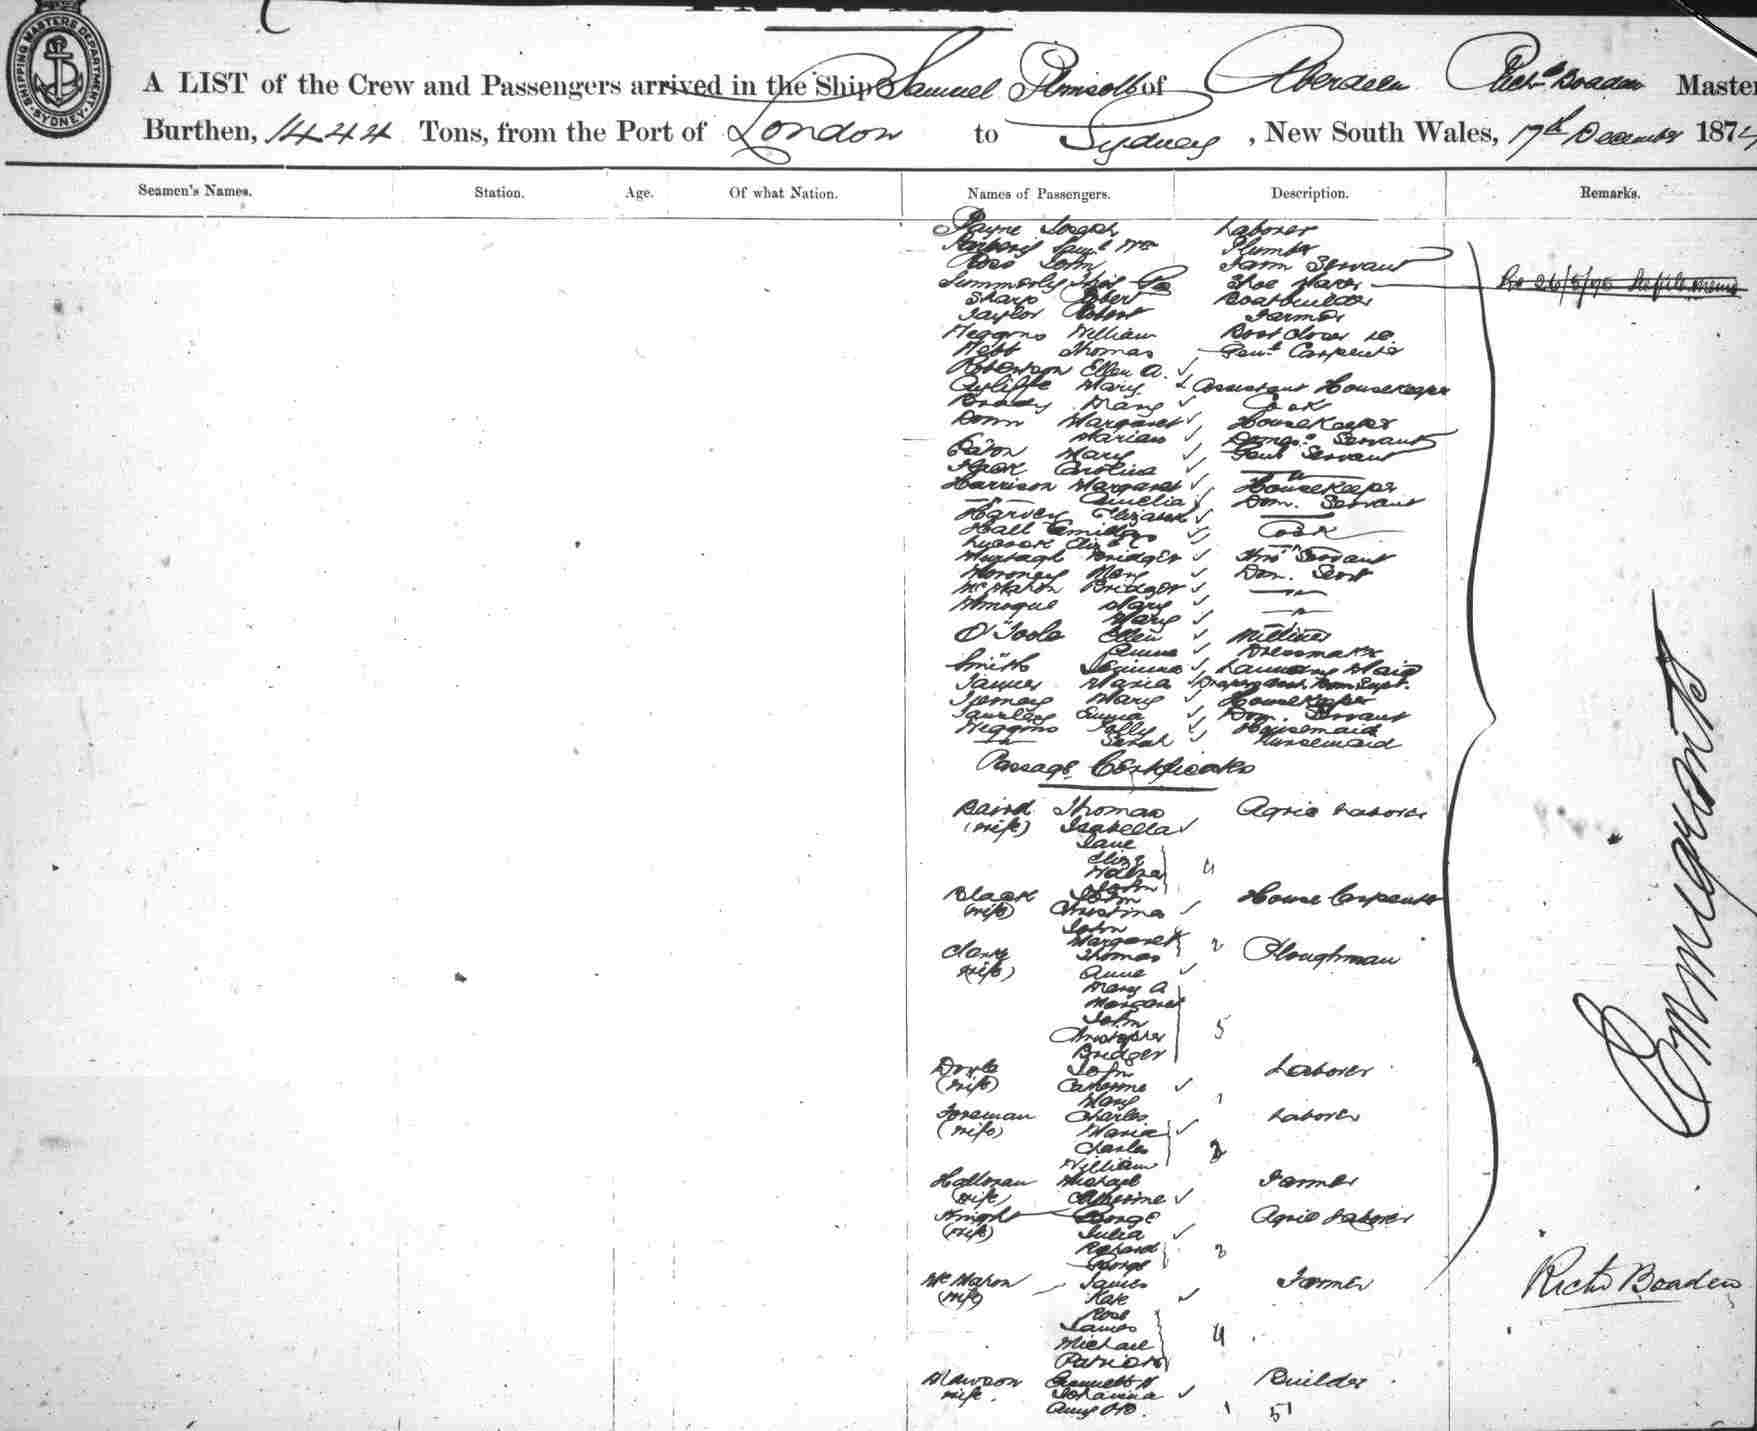 SHIPPING MASTERS DEPARTMENT
SYDNEY
A LIST of the Crew and Passengers arrived in the Ship Samuel Plimsoll of Aberdeen Richd Boaden Master
Burthen, 1444 Tons, from the Port of London to Sydney, New South Wales, 17th December 187
Seamen's Names. Station. Age. Of what Nation. Names of Passengers. Description. Remarks.
Payne Joseph Laborer
Saml Wm Plumber
Ross John Farm Servant
Summerly Shoe Maker
Sharp Robert Boatbuilder
Taylor Robert Farmer
Weggons William Boot Closer
Webb Thomas Carpenter
Robertson Ellen A.
Cutliffe Mary Assistant Housekeeper
Brady Mary Cook
Donn Margaret Housekeeper
Marian Servant
Eaton Mary Genl Servant
Caroline
Harrison Margaret Housekeeper
Amelia Dom. Servant
Harvey Elizabeth
Hall Emily Cook
Murtagh Bridget Servant
Moroney Mary Dom. Servt
McMahon Bridget
Mary
Mary
O'Toole Ellen Milliner
Dressmaker
Smith Jemima Laundry Maid
Maria
Mary Housekeeper
Emma Dom. Servant
Weggons Polly Housemaid
Sarah Nursemaid
Passage Certificates
Baird Thomas Agric Laborer
(wife) Isabella
Jane
Eliza
4
John
Black John House Carpenter
(wife) Christina
John
Margaret 2
Thomas Ploughman
(wife) Anne
Mary A
Margaret
John 5
Christopher
Bridget
Doyle John Laborer
(wife) Catherine
Mary 1
Foreman Charles Laborer
(wife) Maria
Charles 2
William
Halloran Michael Farmer
(wife) Catherine
Knight George Agric Laborer
(wife) Julia
Richard 2
George
McMahon James Farmer
(wife) Kate
Rose
James 4
Michael
Patrick
Mawson Builder
wife Johanna
1 51
Emmigrants
Richd Boaden